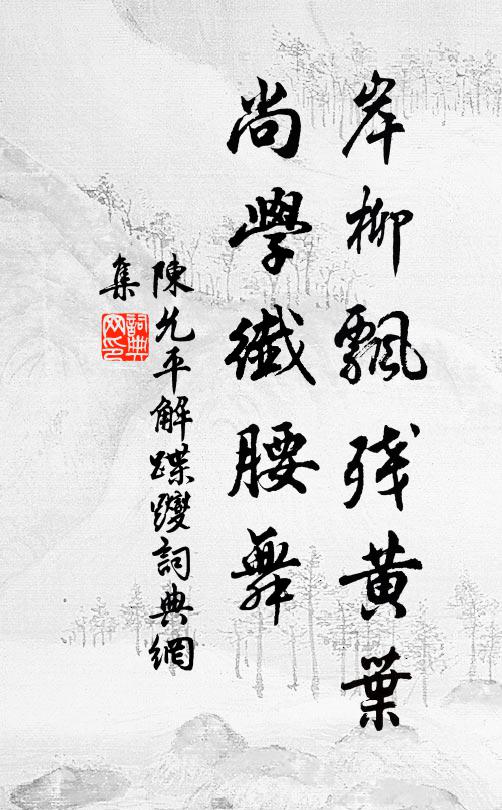 岸柳飄殘黃葉
尚學纖腰舞
陳允平解蹀躞詞典網
集
詞典
网印